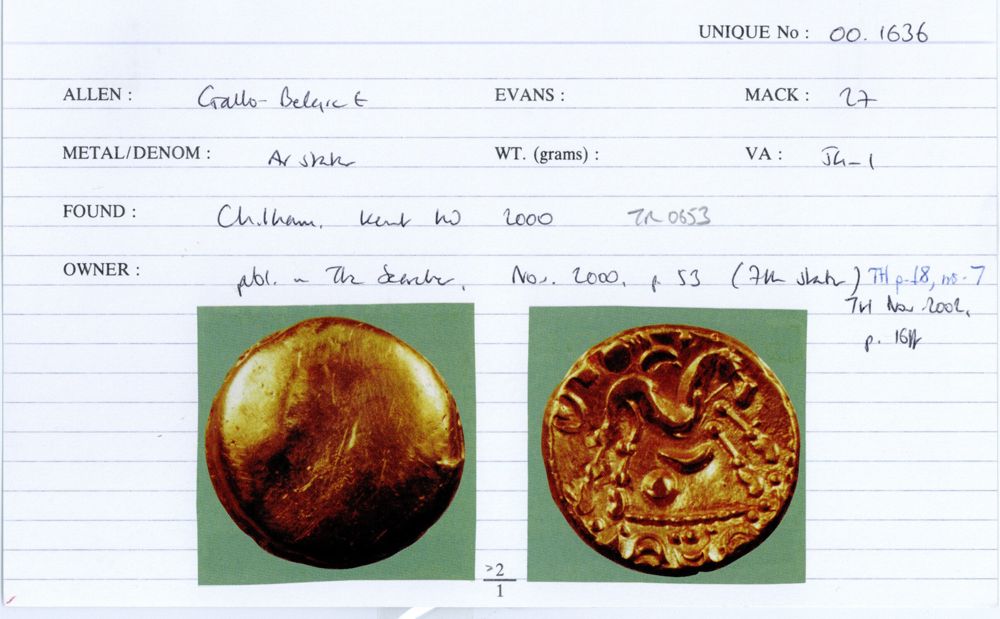 UNIQUE No : 00.1636
ALLEN : Gallo-Belgic E EVANS : MACK : 27
METAL/DENOM : AV stater WT. (grams) : VA :
FOUND : Chilham, Kent 2000 TR 0653
OWNER : publ. in The Searcher, Nov. 2000, p 53 (7th stater) TH p. 18, no. 7
TH Nov 2002,
p. 16ff
>2
1